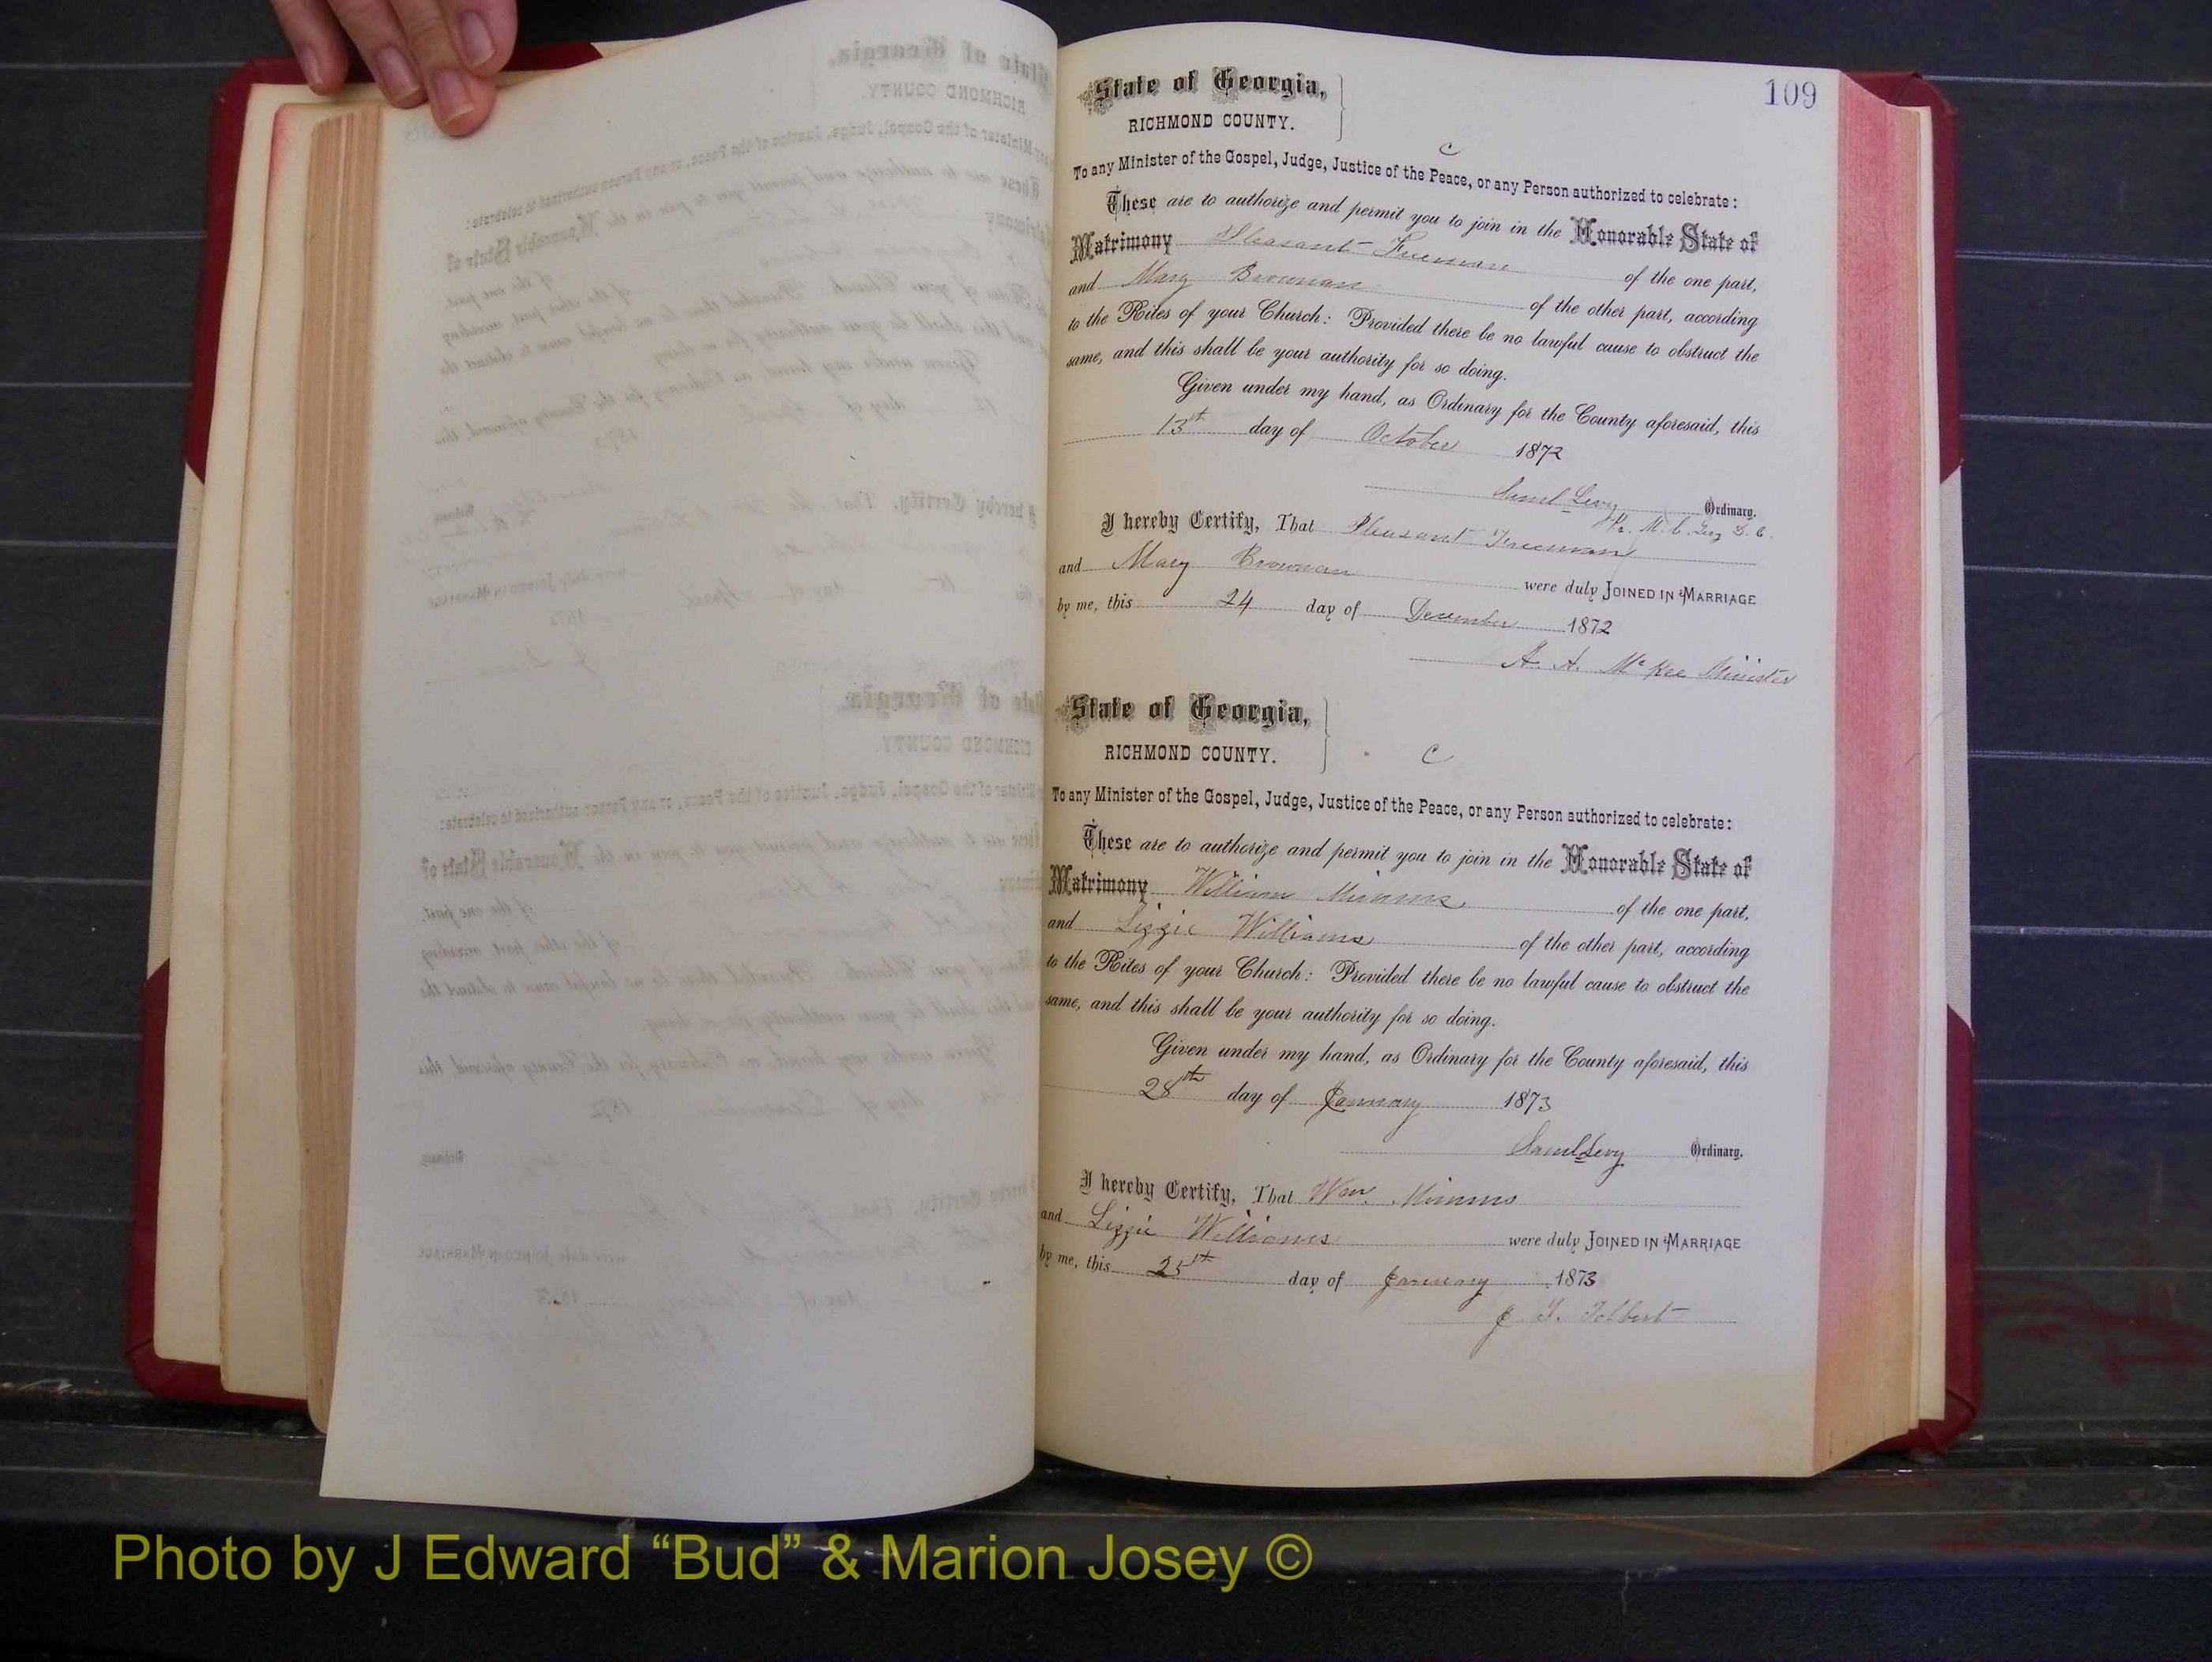 109
State of Georgia,
RICHMOND COUNTY.
C
To any Minister of the Gospel, Judge, Justice of the Peace, or any Person authorized to celebrate:
These are to authorize and permit you to join in the Honorable State of
Matrimony Pleasant Freeman of the one part,
and Mary Brownan of the other part, according
to the Rites of your Church: Provided there be no lawful cause to obstruct the
same, and this shall be your authority for so doing.
Given under my hand, as Ordinary for the County aforesaid, this
13th day of October 1872
Saml Levy Ordinary.
Pr. M. C. Levy D. C.
I hereby Certify, That Pleasant Freeman
and Mary Brownan were duly JOINED IN MARRIAGE
by me, this 24 day of December 1872
A. A. McKee Minister
State of Georgia,
RICHMOND COUNTY.
C
To any Minister of the Gospel, Judge, Justice of the Peace, or any Person authorized to celebrate:
These are to authorize and permit you to join in the Honorable State of
Matrimony William Mimms of the one part,
and Lizzie Williams of the other part, according
to the Rites of your Church: Provided there be no lawful cause to obstruct the
same, and this shall be your authority for so doing.
Given under my hand, as Ordinary for the County aforesaid, this
28th day of January 1873
Saml Levy Ordinary.
I hereby Certify, That Wm. Mimms
and Lizzie Williams were duly JOINED IN MARRIAGE
by me, this 25th day of January 1873
J. T. Tolbert
Photo by J Edward “Bud” & Marion Josey ©